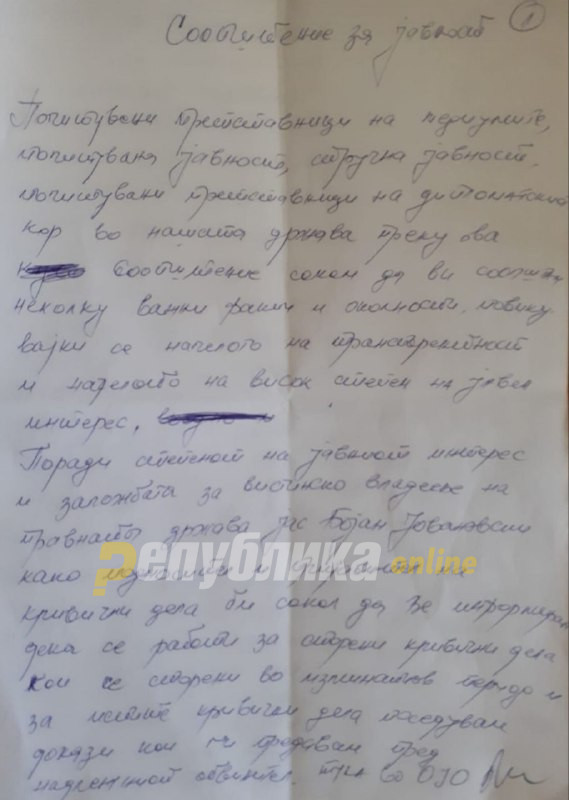 1
Соопштение за јавност
Почитувани претставници на медиумите,
почитувана јавност, стручна јавност,
почитувани претставници на дипломатскиот
кор во нашата држава преку ова
соопштение сакам да ви соопштам
неколку важни факти и околности, повику
вајки се начелото на транспарентност
и начелото на висок степен на јавен
интерес,
Поради степенот на јавниот интерес
и заложбата за вистинско владеење на
правната држава јас Бојан Јовановски
како
Република online
кривични дела би сакал да ве информирам
дека се работи за сторени кривични дела
кои се сторени во изминатиов период и
за истите кривични дела поседувам
докази кои ги предавам пред
надлежниот обвинител